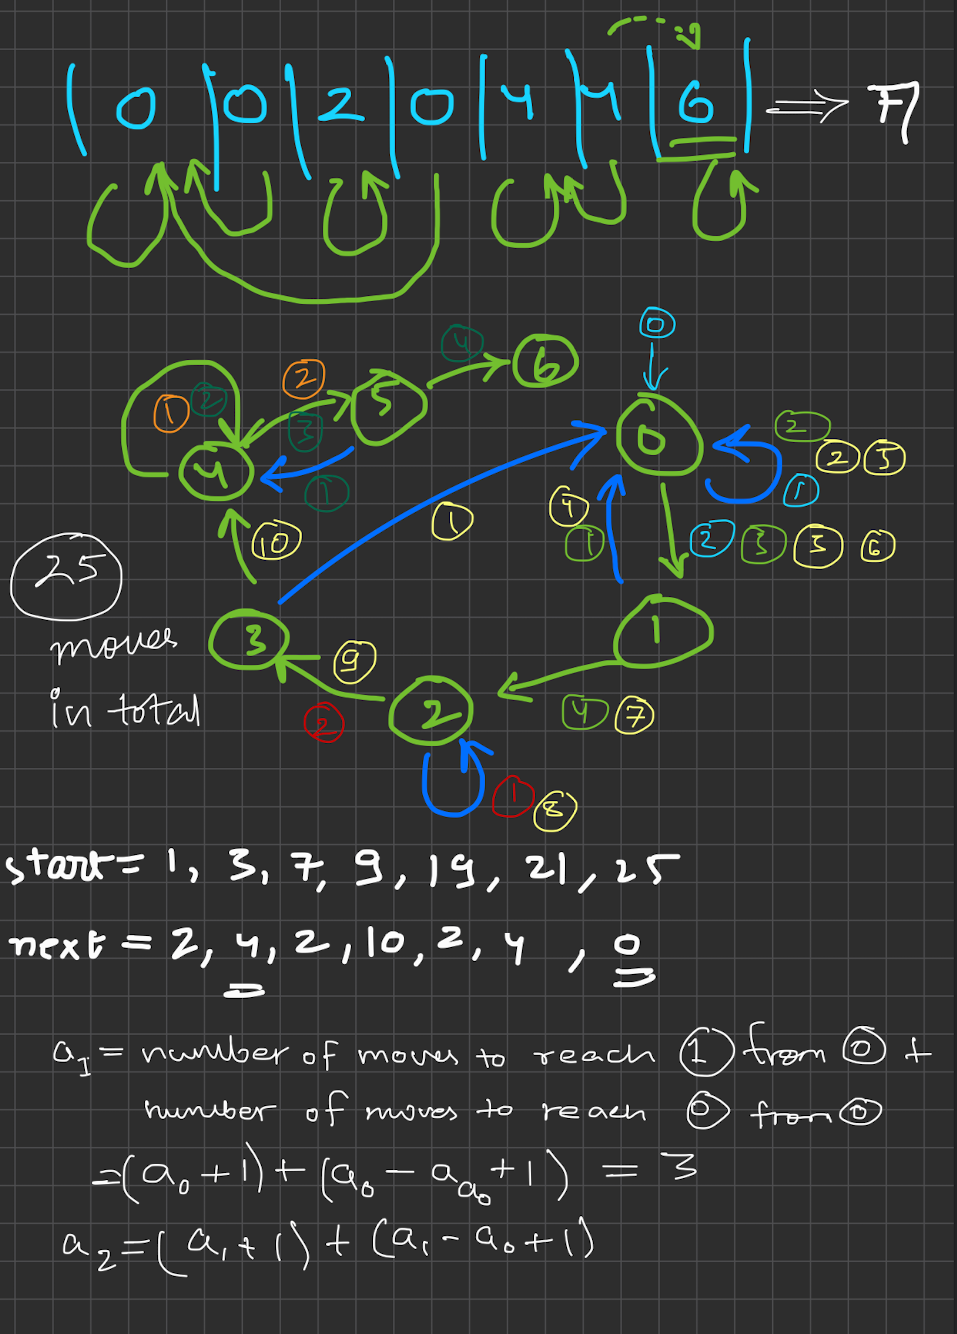 | 0 | 0 | 2 | 0 | 4 | 4 | 6 | ⟹
0
4
6
2
5
1 2
0
2
3
2 5
4
1
1
4
1
10
1
2 3 3 6
25
3
1
moves
9
in total
2
2
4 7
1
8
start = 1, 3, 7, 9, 19, 21, 25
next = 2, 4, 2, 10, 2, 4, 0
a₁ = number of moves to reach ① from ⓪ +
number of moves to reach ⓪ from ⓪
= (a₀ + 1) + (a₀ - a_{a₀} + 1) = 3
a₂ = (a₁ + 1) + (a₁ - a₀ + 1)